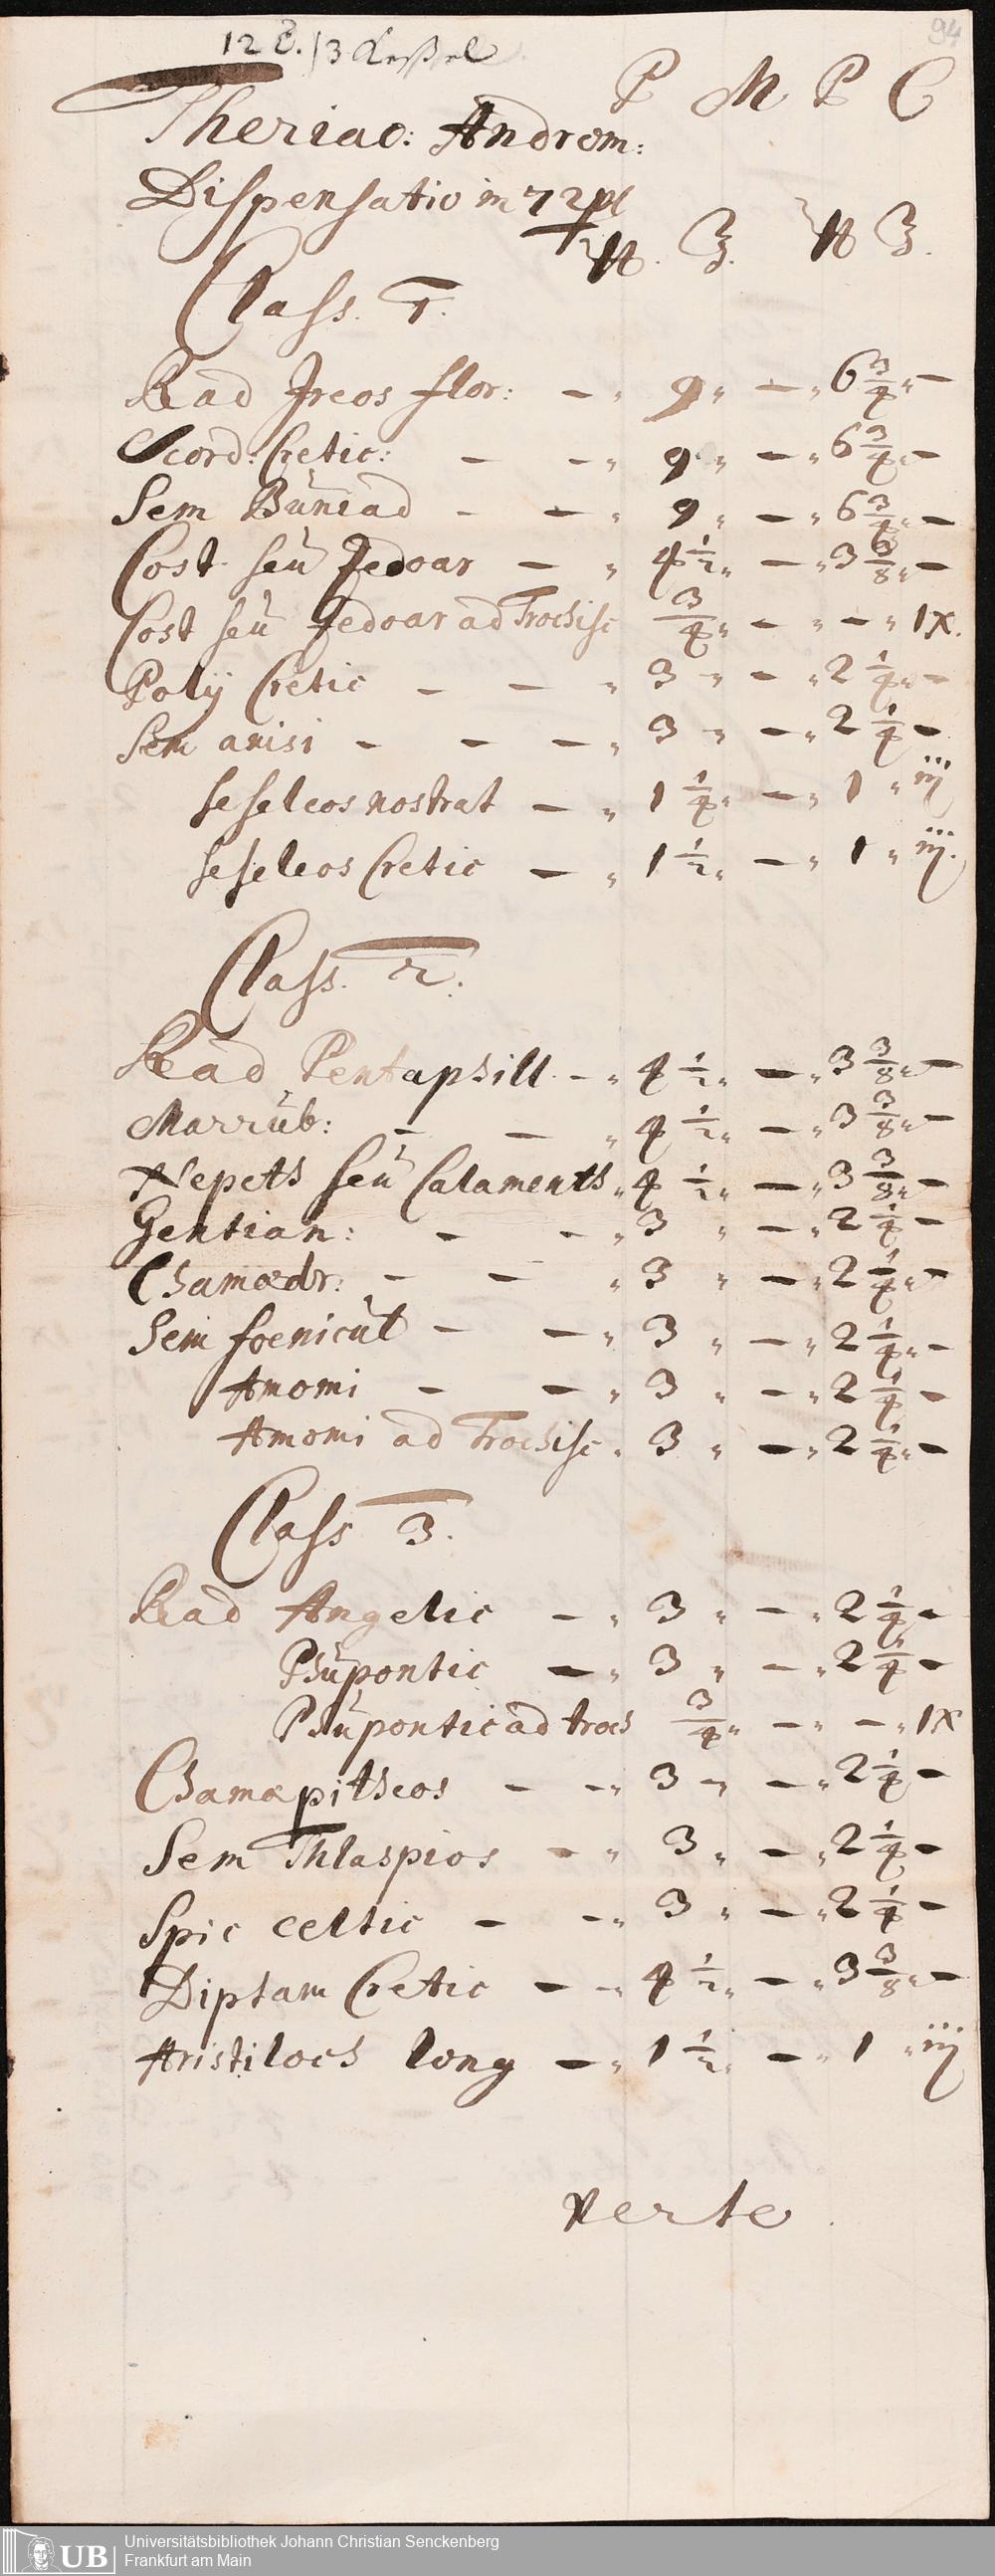 94
12 /3 Kessel
P M P C
Theriac: Androm:
Dispensatio in 72 pl
℔. ℥. ℔ ℥.
Class. 1.
Rad Jreos flor: — „ 9 „ — „ 6 3/4 „ —
Scord: Cretic: — — „ 9 „ — „ 6 3/4 „ —
Sem Buniad — — „ 9 „ — „ 6 3/4 „ —
Cost seu Zedoar — „ 4 1/2 „ — „ 3 3/8 „ —
Cost seu Zedoar ad Trochisc 3/4 „ — „ — „ 1X.
Polÿ Cretic — — „ 3 „ — „ 2 1/4 „ —
Sem anisi — — — „ 3 „ — „ 2 1/4 —
seseleos nostrat — „ 1 1/2 „ — „ 1 „ iij
seseleos Cretic — „ 1 1/2 „ — „ 1 „ iij.
Class. 2.
Rad Pentaphill — „ 4 1/2 „ — „ 3 3/8 „ —
Marrub: — — „ 4 1/2 „ — „ 3 3/8 „ —
Nepeth seu Calamenth „ 4 1/2 „ — „ 3 3/8 „ —
Gentian: — — „ 3 „ — „ 2 1/4 —
Chamædr: — — „ 3 „ — „ 2 1/4 „ —
Sem foenicul — — „ 3 „ — „ 2 1/4 „ —
Amomi — — „ 3 „ — „ 2 1/4 —
Amomi ad Trochisc „ 3 „ — „ 2 1/4 „ —
Class 3.
Rad Angelic — „ 3 „ — „ 2 1/4 —
Rhupontic — „ 3 „ — „ 2 1/4 —
Rhupontic ad troch 3/4 „ — „ — „ 1X
Chamæpitheos — — „ 3 „ — „ 2 1/4 —
Sem Thlaspios — „ 3 „ — „ 2 1/4 —
Spic celtic — — „ 3 „ — „ 2 1/4 —
Diptam Cretic — — „ 4 1/2 „ — „ 3 3/8 „ —
Aristiloch long — „ 1 1/2 „ — „ 1 „ iij
verte
UB
Universitätsbibliothek Johann Christian Senckenberg
Frankfurt am Main